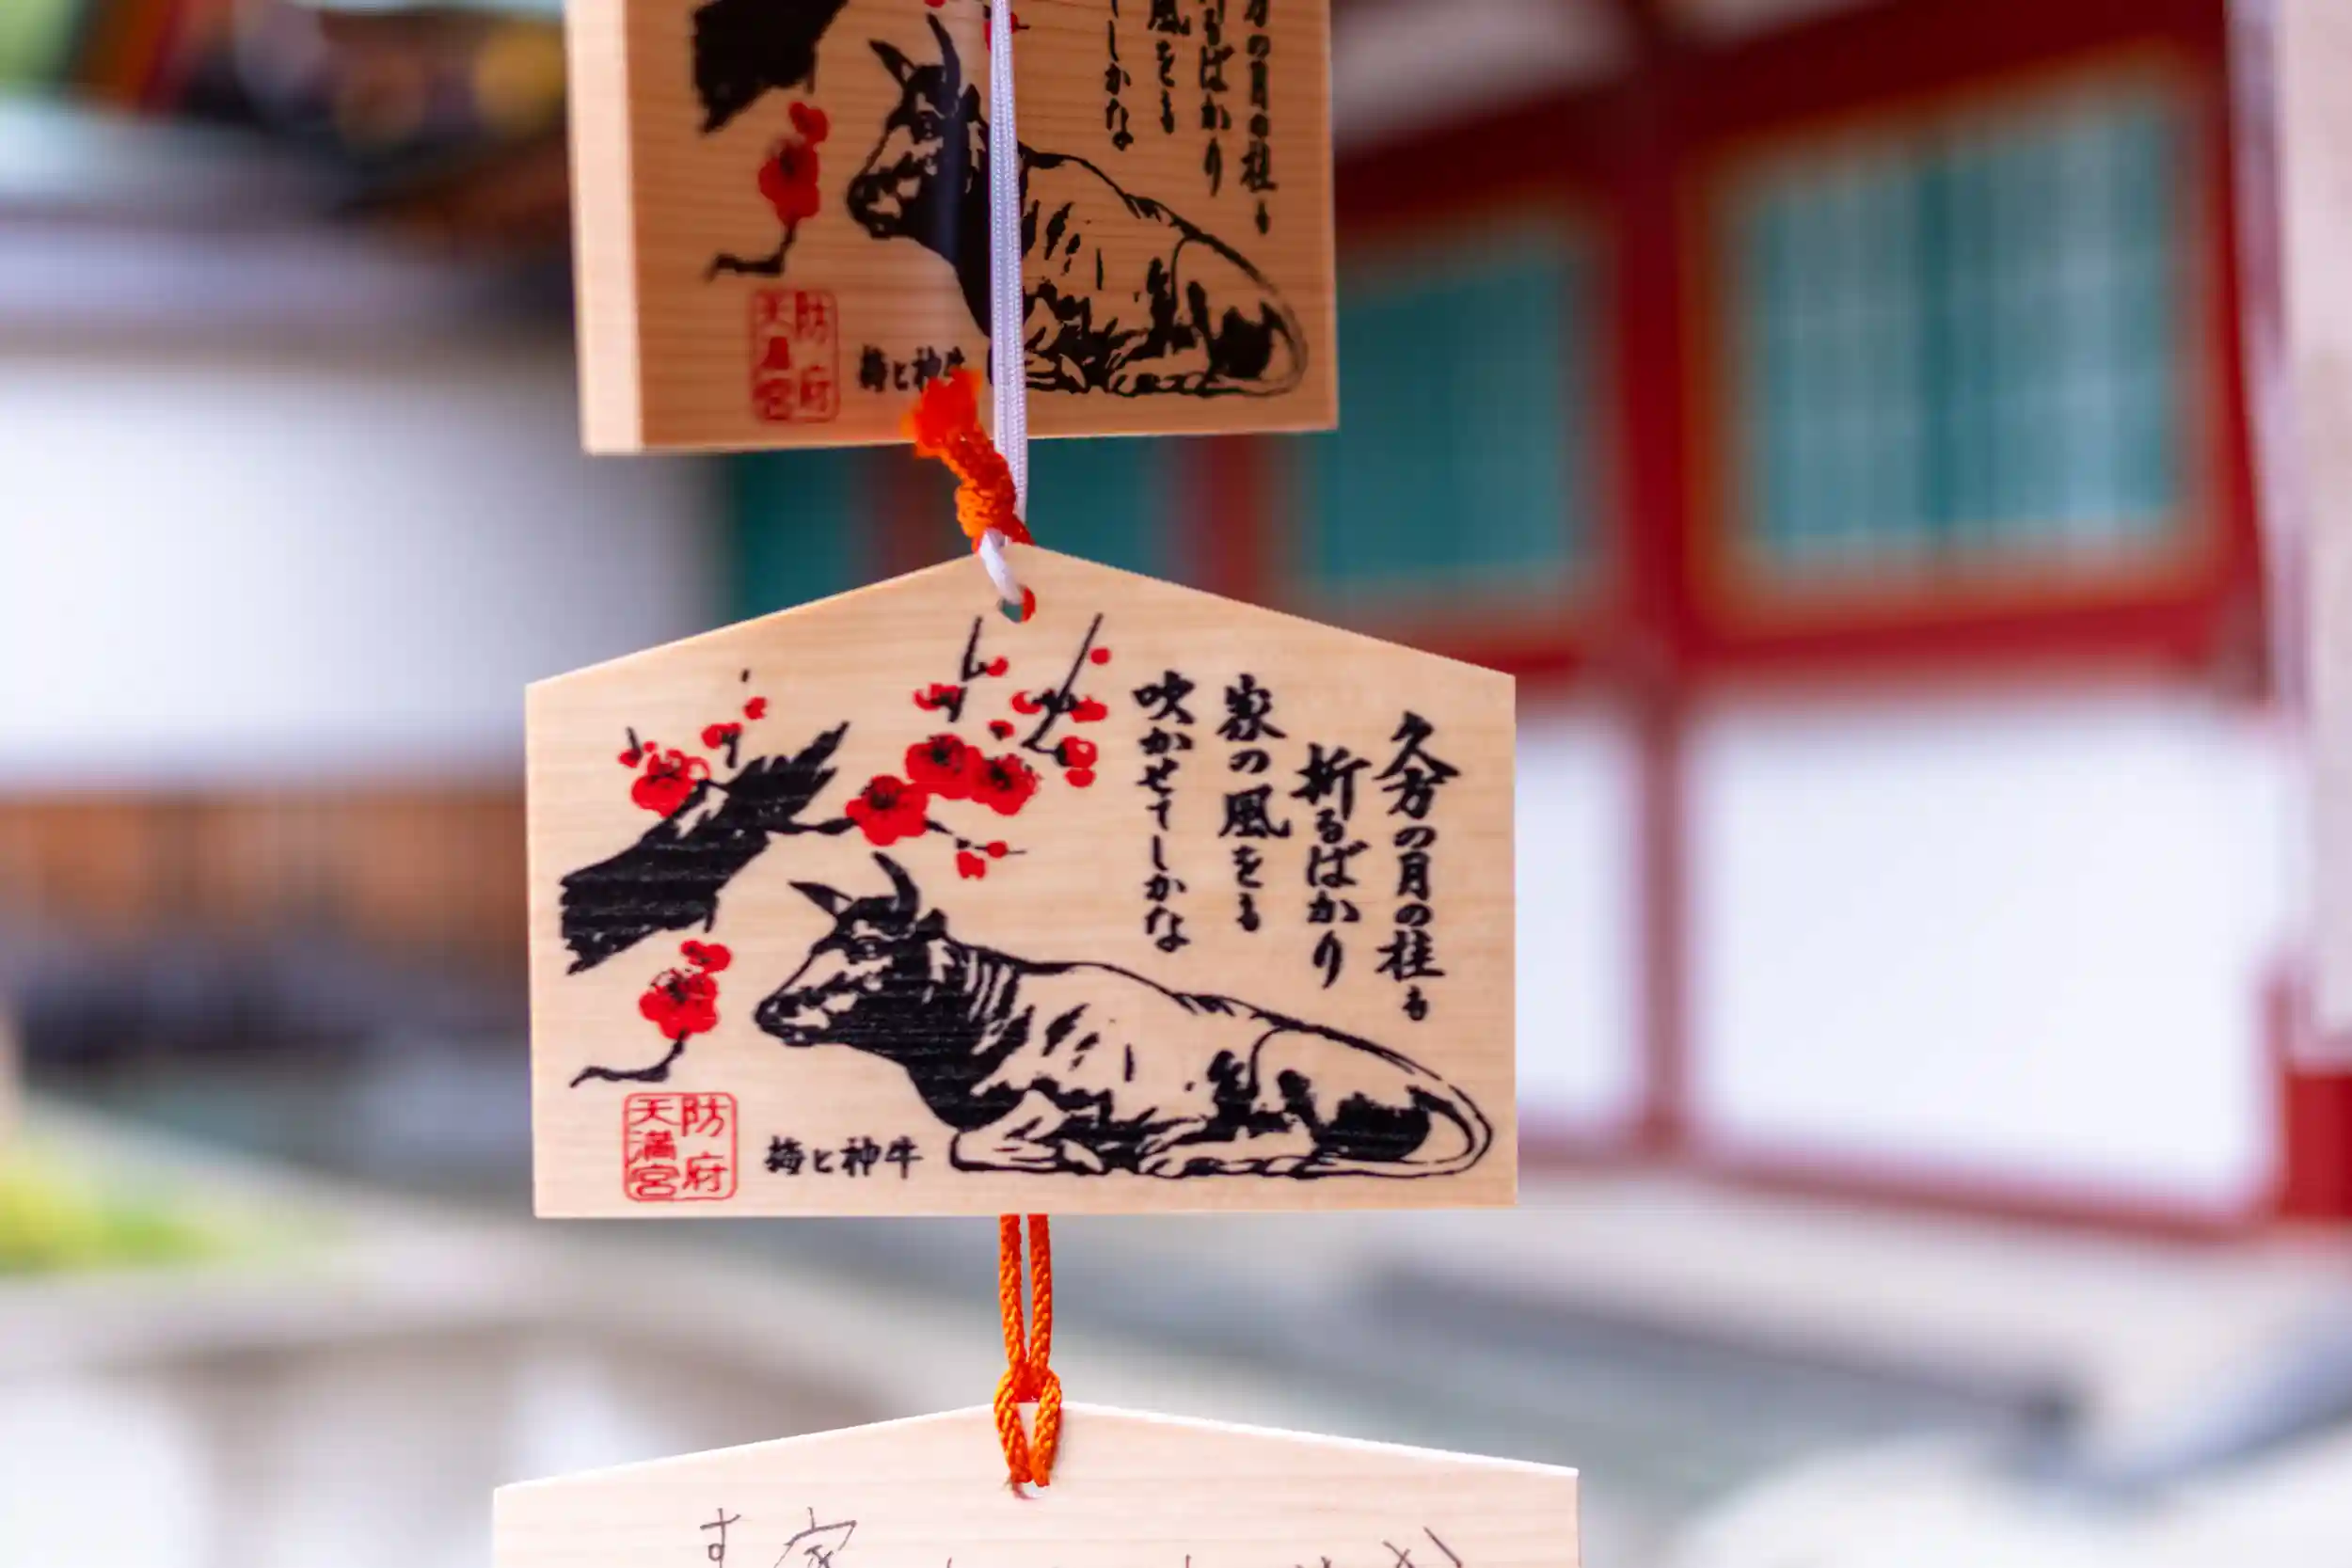 方の月の桂も
るばかり
風をも
てしかな
梅と神牛
防府
天満宮
久方の月の桂も
折るばかり
家の風をも
吹かせてしかな
梅と神牛
防府
天満宮
家
す